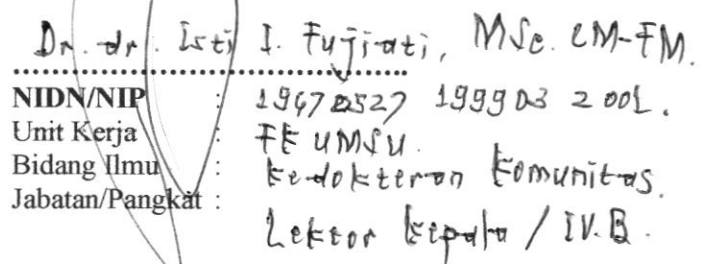 Dr. dr. Isti I. Fujiati, MSc. CM-FM.
NIDN/NIP : 19670527 199903 2001.
Unit Kerja : FK UMSU.
Bidang Ilmu : Kedokteran Komunitas.
Jabatan/Pangkat : Lektor Kepala / IV.B.